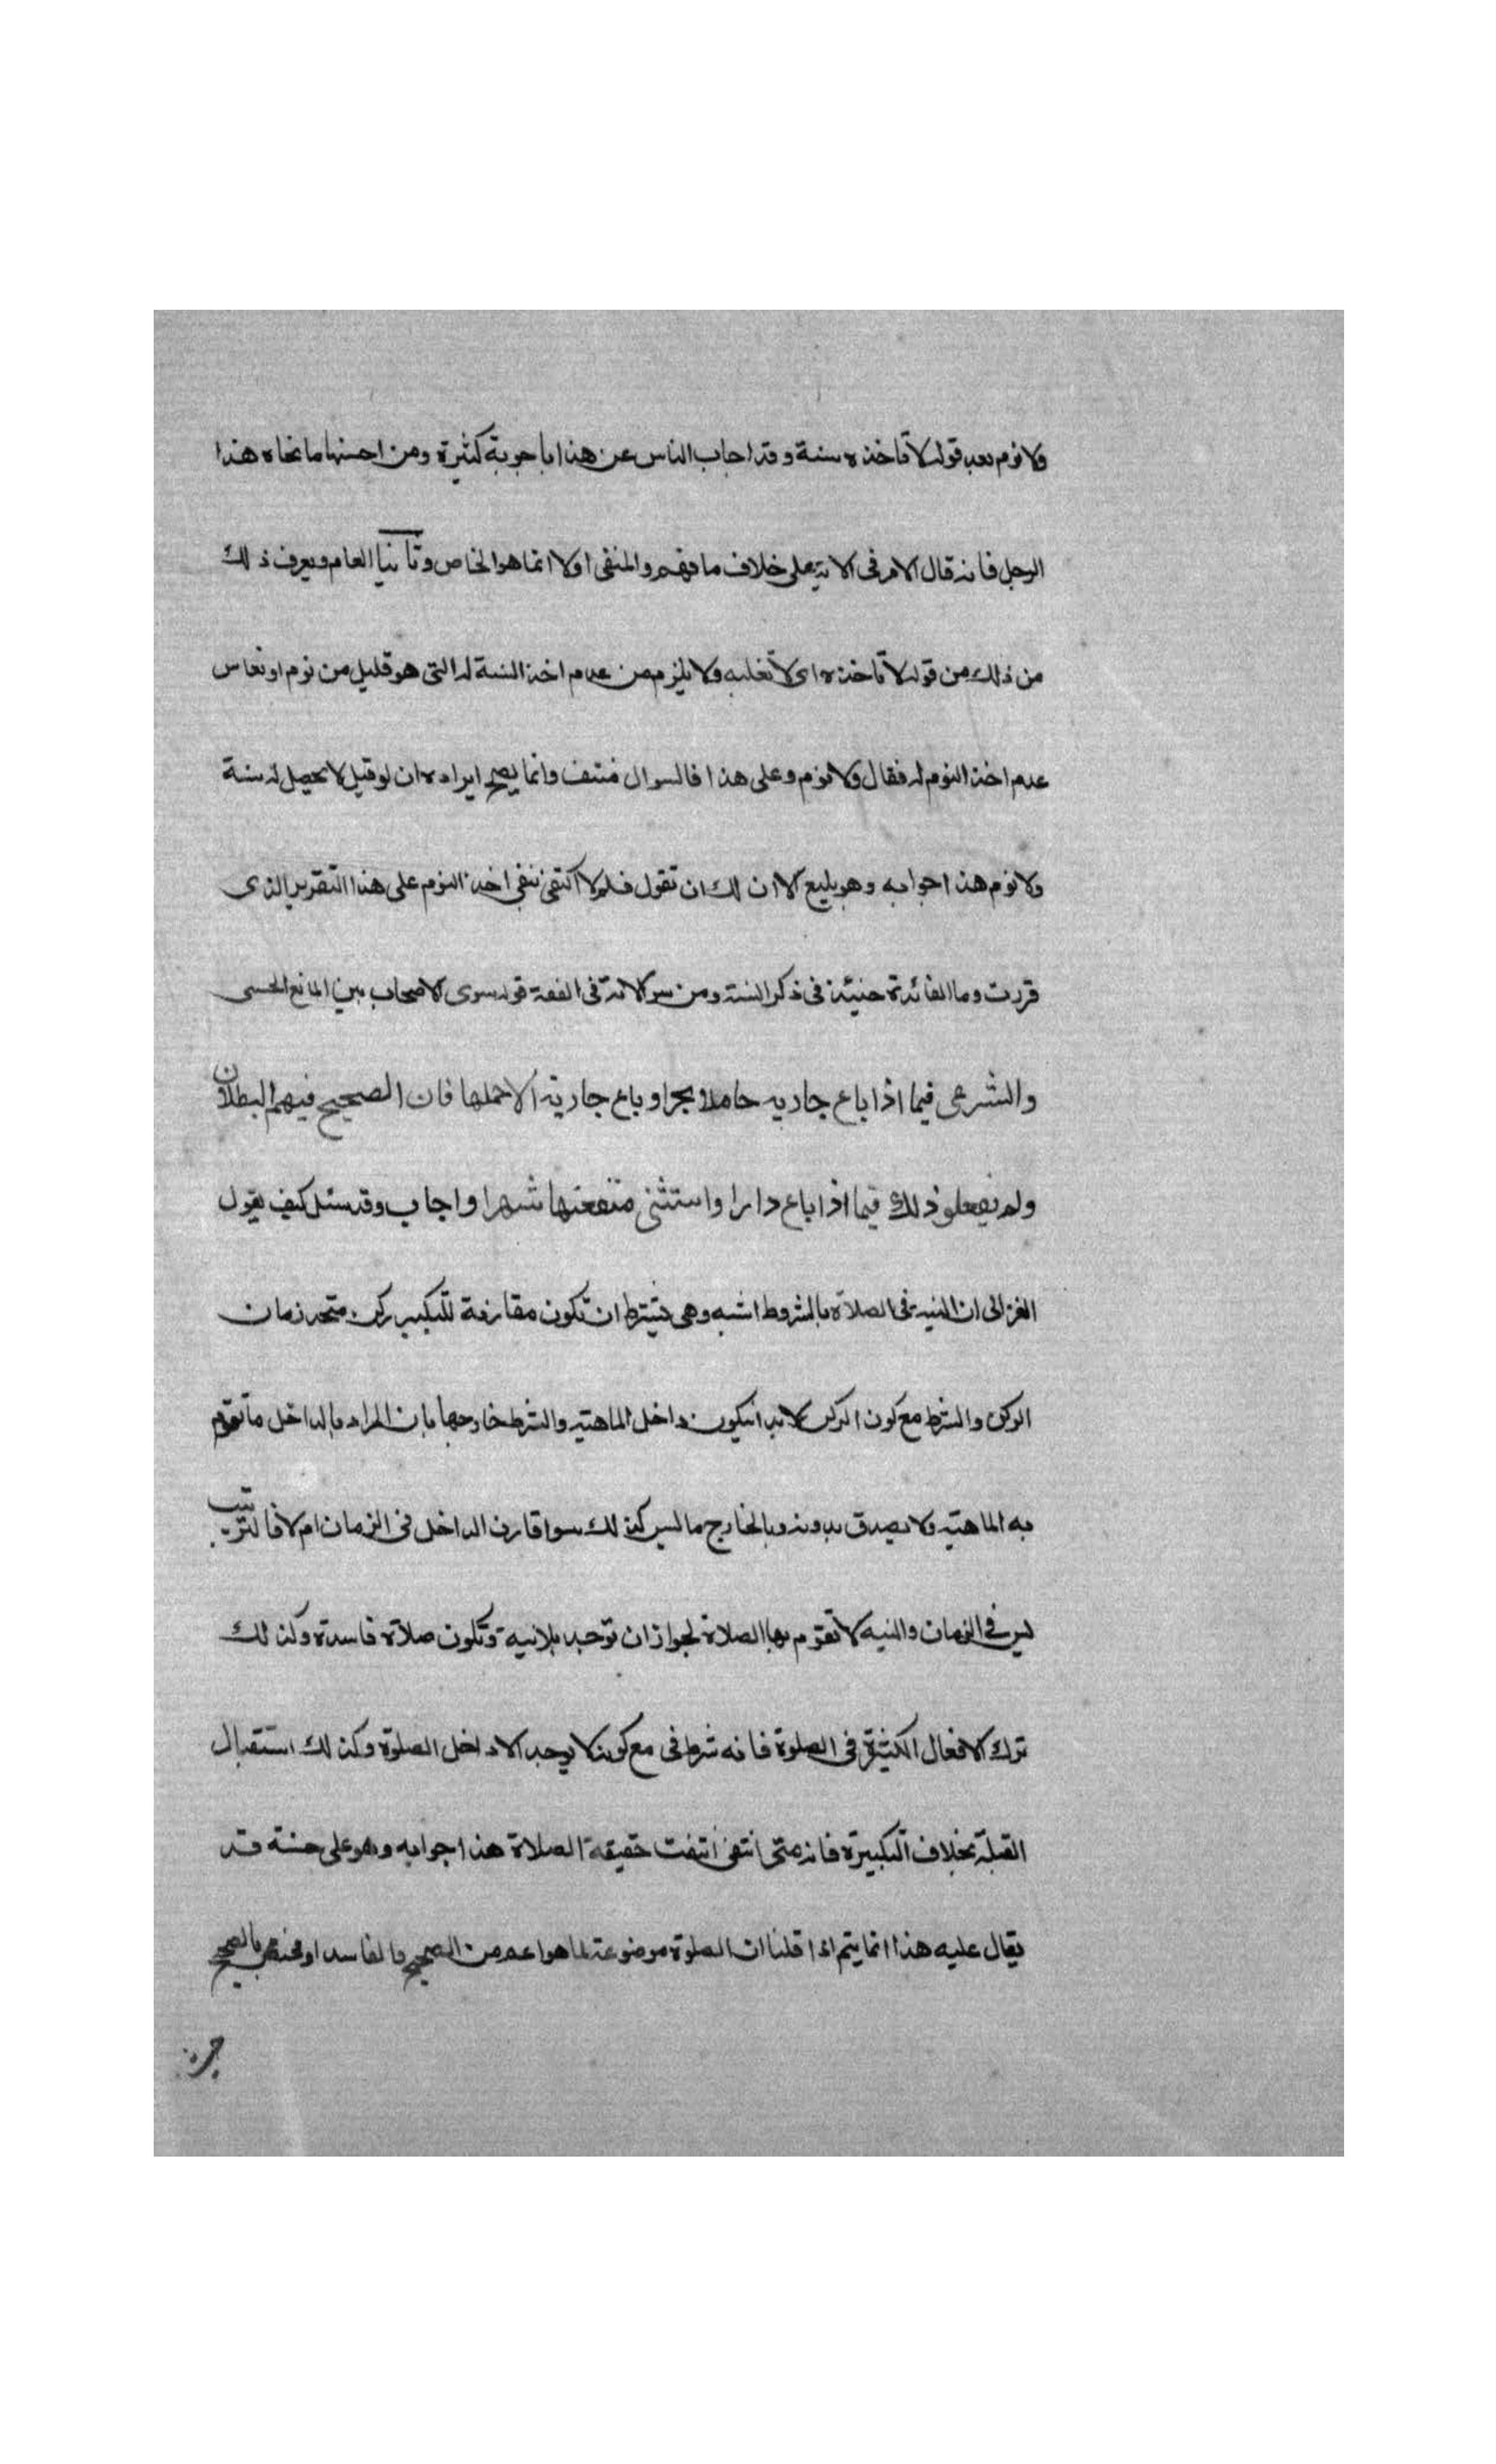 ولا نوم بعد قوله لا تاخذه سنة وقد اجاب الناس عن هذا باجوبة كثيرة ومن احسنها ما نحاه هذا
الرجل فانه قال الامر فى الاية على خلاف ما فهم والمنفى اولا انما هو الخاص وثانيا العام ويعرف ذلك
من ذلك من قوله لا تاخذه اى لا تغلبه ولا يلزم من عدم اخذ السنة له التى هو قليل من نوم او نعاس
عدم اخذ النوم له فقال ولا نوم وعلى هذا فالسوال منتف وانما يصح ايراده ان لو قيل لا يحصل له سنة
ولا نوم هذا جوابه وهو بليع الا ان لك ان تقول فلم لا اكتفى بنفى اخذ النوم على هذا التقرير الذى
قررت وما الفائدة حنيئذ فى ذكر السنة ومن سوالاته فى الفقة قوله سوى الاصحاب بين المانع الحسى
والشرعى فيما اذا باع جاريه حاملا بحر او باع جارية الا حملها فان الصحيح فيهم البطلان
ولم يفعلو ذلك فيما اذا باع دارا واستثنى منفعتها شهرا واجاب وقد سئل كيف يقول
الغزالى ان النيه فى الصلاة بالشروط اشبه وهى يشترط ان تكون مقارنة للتكبير ركن متحد زمان
الركن والشرط مع كون الركن لا بد ان يكون داخل الماهيته والشرط خارجها بان المراد بالداخل ما تقوم
به الماهيته ولا يصدق بدونه وبالخارج ما ليس كذلك سوا قارن الداخل فى الزمان ام لا فالترتيب
ليس فى الزمان والنيه لا تقوم بها الصلاة لجواز ان توحد بلا نية وتكون صلاة فاسدة وكذلك
ترك الافعال الكثيرة فى الصلوة فانه شرط فى مع كونه لا يوجد الا داخل الصلوة وكذلك استقبال
القبلة بخلاف التكبيرة فانه متى انتفى انتفت حقيقة الصلاة هذا جوابه وهو على حسنه قد
يقال عليه هذا انما يتم اذا قلنا ان الصلوة موضوعة لما هو اعم من الصحيح والفاسد او مختص بالصحيح